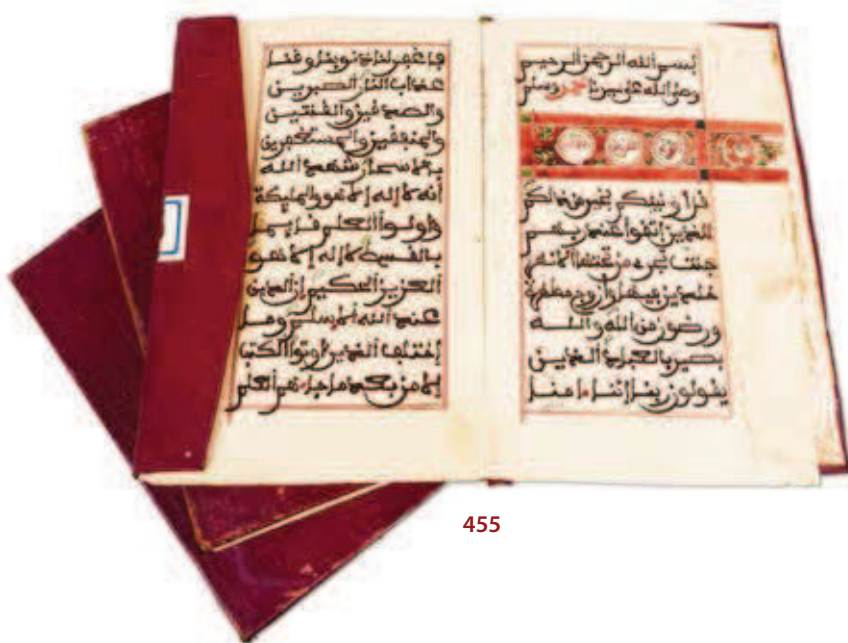 بسم الله الرحمن الرحيم
وصلى الله على سيدنا محمد وسلم
قل أونبئكم بخير من ذلكم
للذين اتقوا عند ربهم
جنت تجرى من تحتها الانهر
خلدين فيها وأزوج مطهرة
ورضون من الله والله
بصير بالعباد الذين
يقولون ربنا إننا ءامنا
فاغفر لنا ذنوبنا وقنا
عذاب النار الصبرين
والصدقين والقنتين
والمنفقين والمستغفرين
بالاسحار شهد الله
أنه لا إله إلا هو والمليكة
وأولوا العلم قايما
بالقسط لا إله إلا هو
العزيز الحكيم إن الدين
عند الله الاسلم وما
اختلف الذين أوتوا الكتب
إلا من بعد ما جاءهم العلم
455